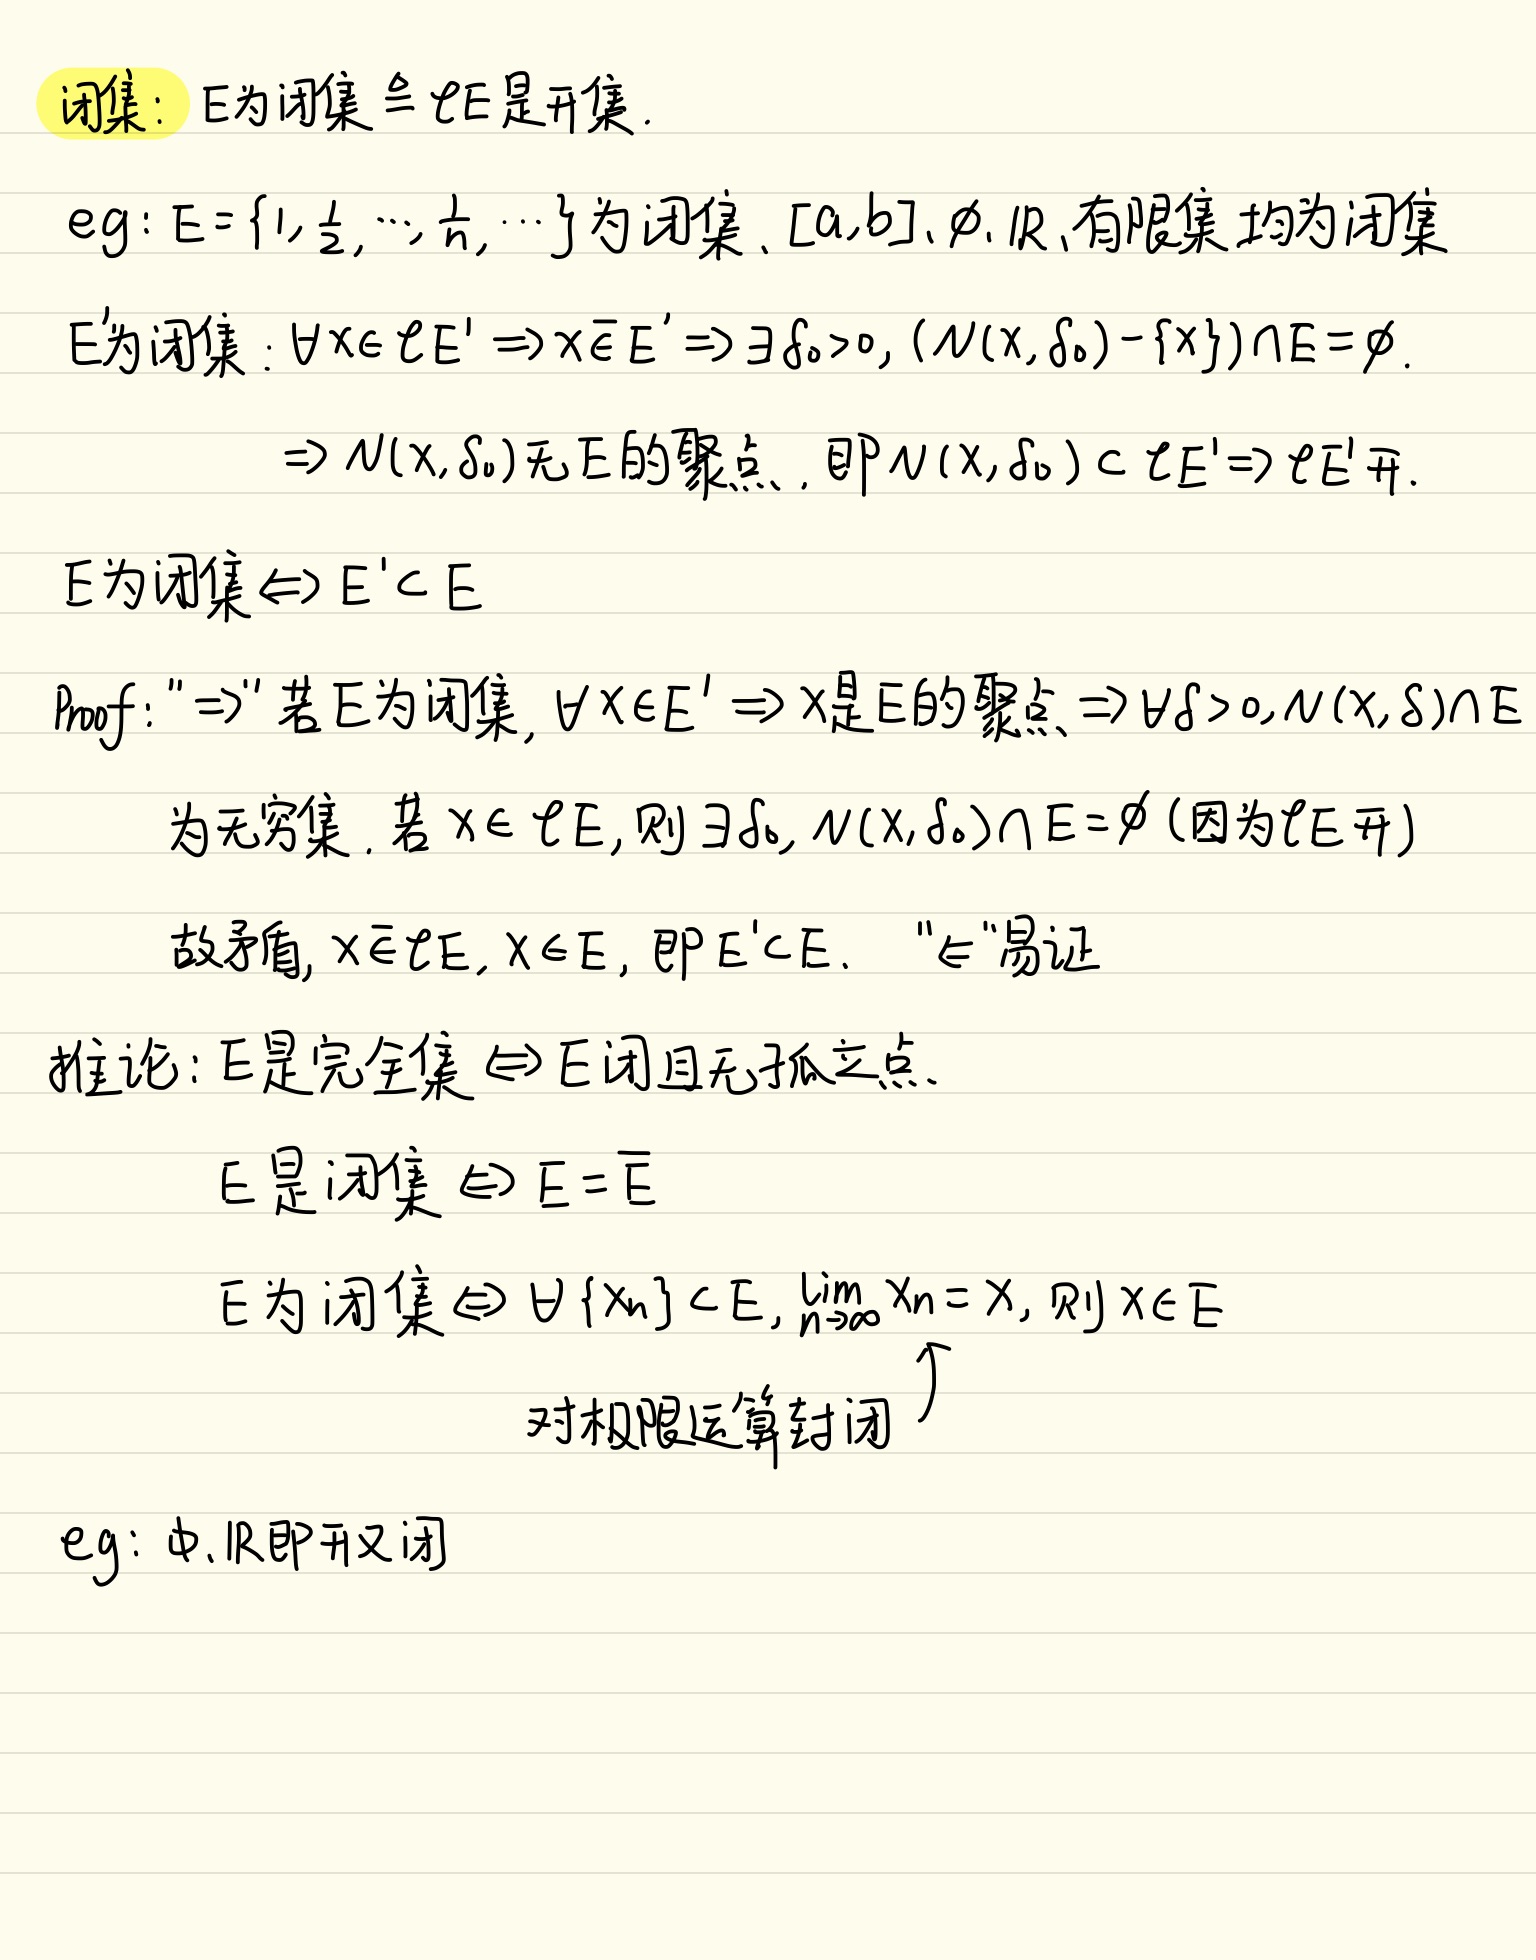 闭集: E为闭集 ≙ ∁E是开集.
eg: E={1, 1/2, ⋯, 1/n, ⋯}为闭集、[a,b]、∅、ℝ、有限集均为闭集
E'为闭集: ∀x∈∁E' ⇒ x∈̅E' ⇒ ∃δ₀>0, (N(x,δ₀)-{x})∩E=∅.
⇒ N(x,δ₀)无E的聚点. 即N(x,δ₀)⊂∁E' ⇒ ∁E'开.
E为闭集 ⇔ E'⊂E
Proof: "⇒" 若E为闭集, ∀x∈E' ⇒ x是E的聚点 ⇒ ∀δ>0, N(x,δ)∩E
为无穷集. 若x∈∁E, 则∃δ₀, N(x,δ₀)∩E=∅(因为∁E开)
故矛盾, x∈̅∁E, x∈E, 即E'⊂E. "⇐"易证
推论: E是完全集 ⇔ E闭且无孤立点.
E是闭集 ⇔ E=E̅
E为闭集 ⇔ ∀{xn}⊂E, lim n→∞ xn=x, 则x∈E
对极限运算封闭
eg: ϕ、ℝ即开又闭